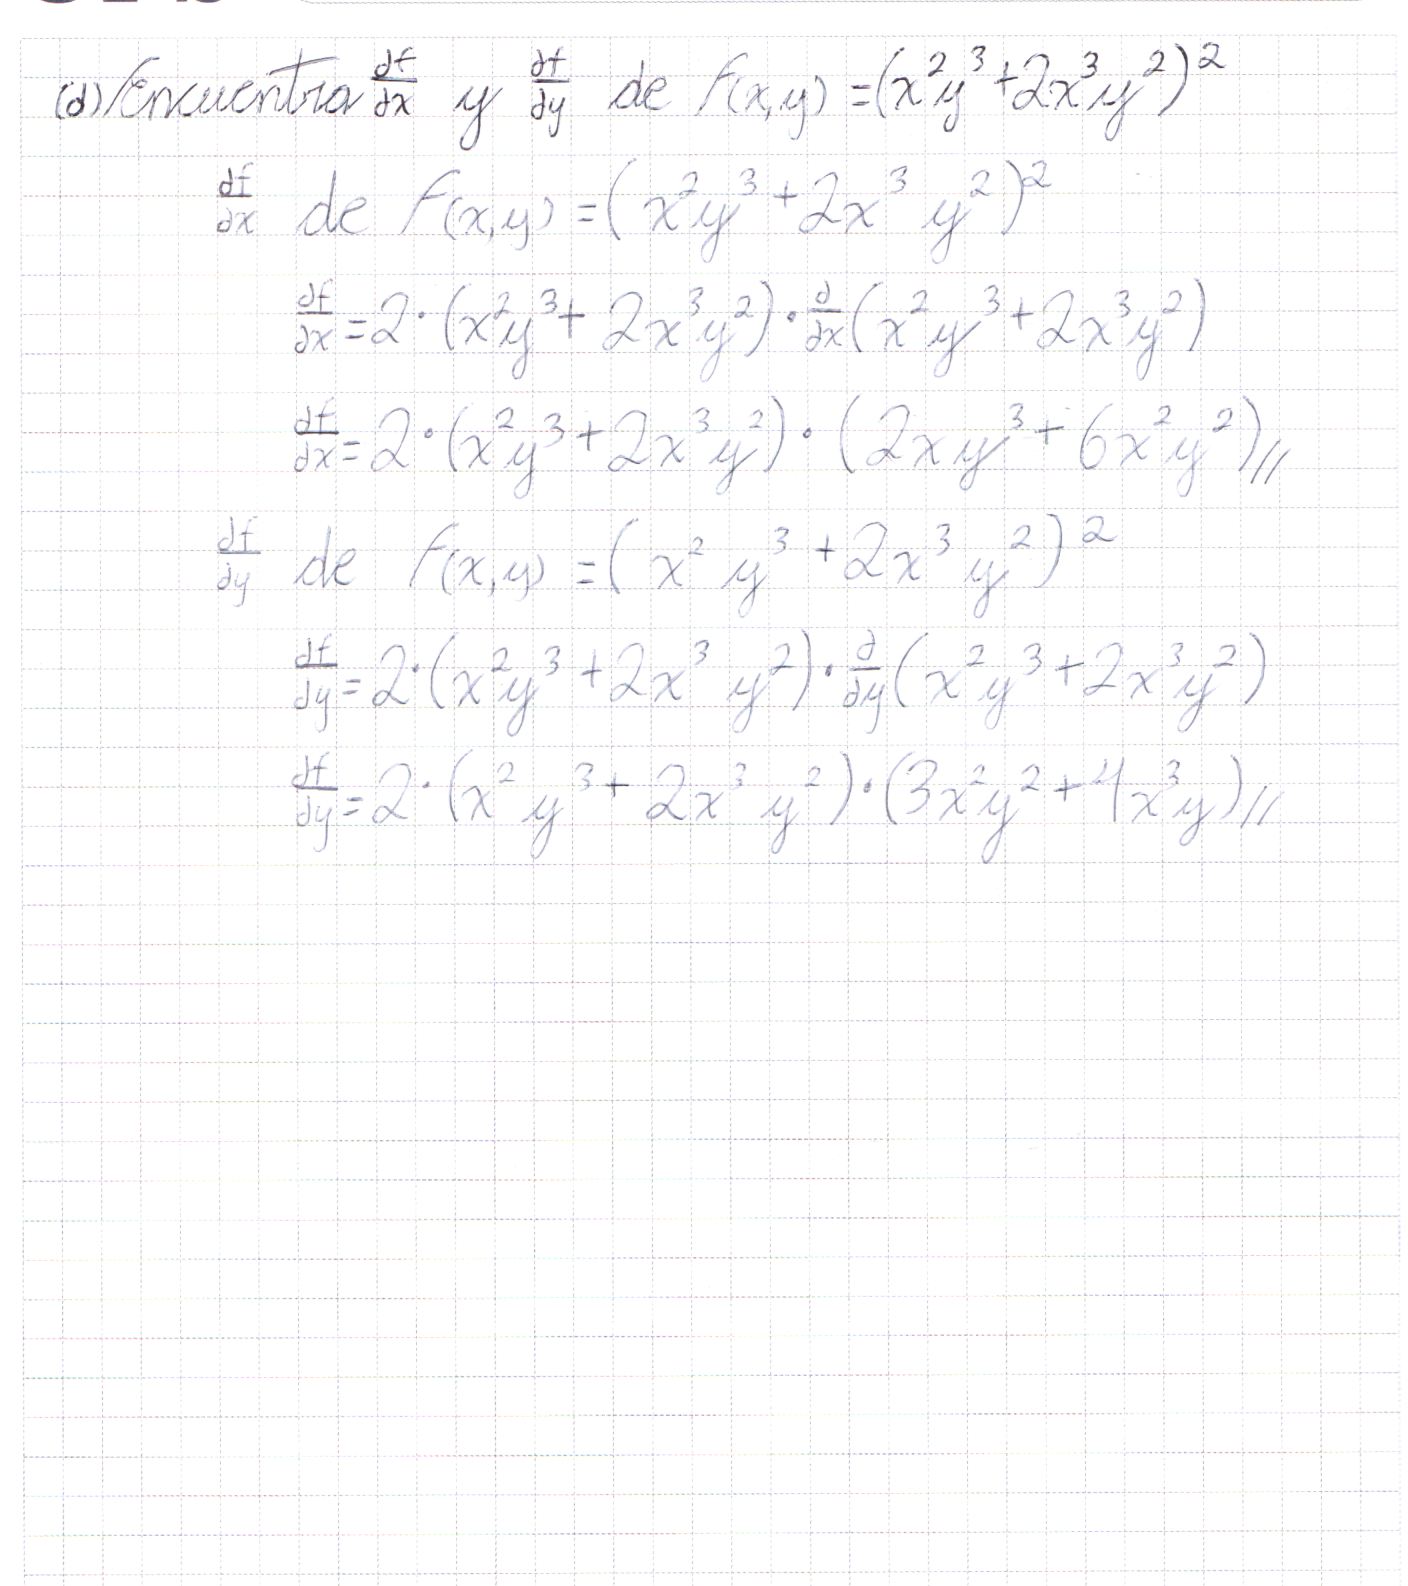 (d) Encuentra ∂f/∂x y ∂f/∂y de f(x,y) = (x²y³+2x³y²)²
∂f/∂x de f(x,y) = (x²y³+2x³y²)²
∂f/∂x = 2·(x²y³+2x³y²)·∂/∂x(x²y³+2x³y²)
∂f/∂x = 2·(x²y³+2x³y²)·(2xy³+6x²y²)//
∂f/∂y de f(x,y) = (x²y³+2x³y²)²
∂f/∂y = 2·(x²y³+2x³y²)·∂/∂y(x²y³+2x³y²)
∂f/∂y = 2·(x²y³+2x³y²)·(3x²y²+4x³y)//